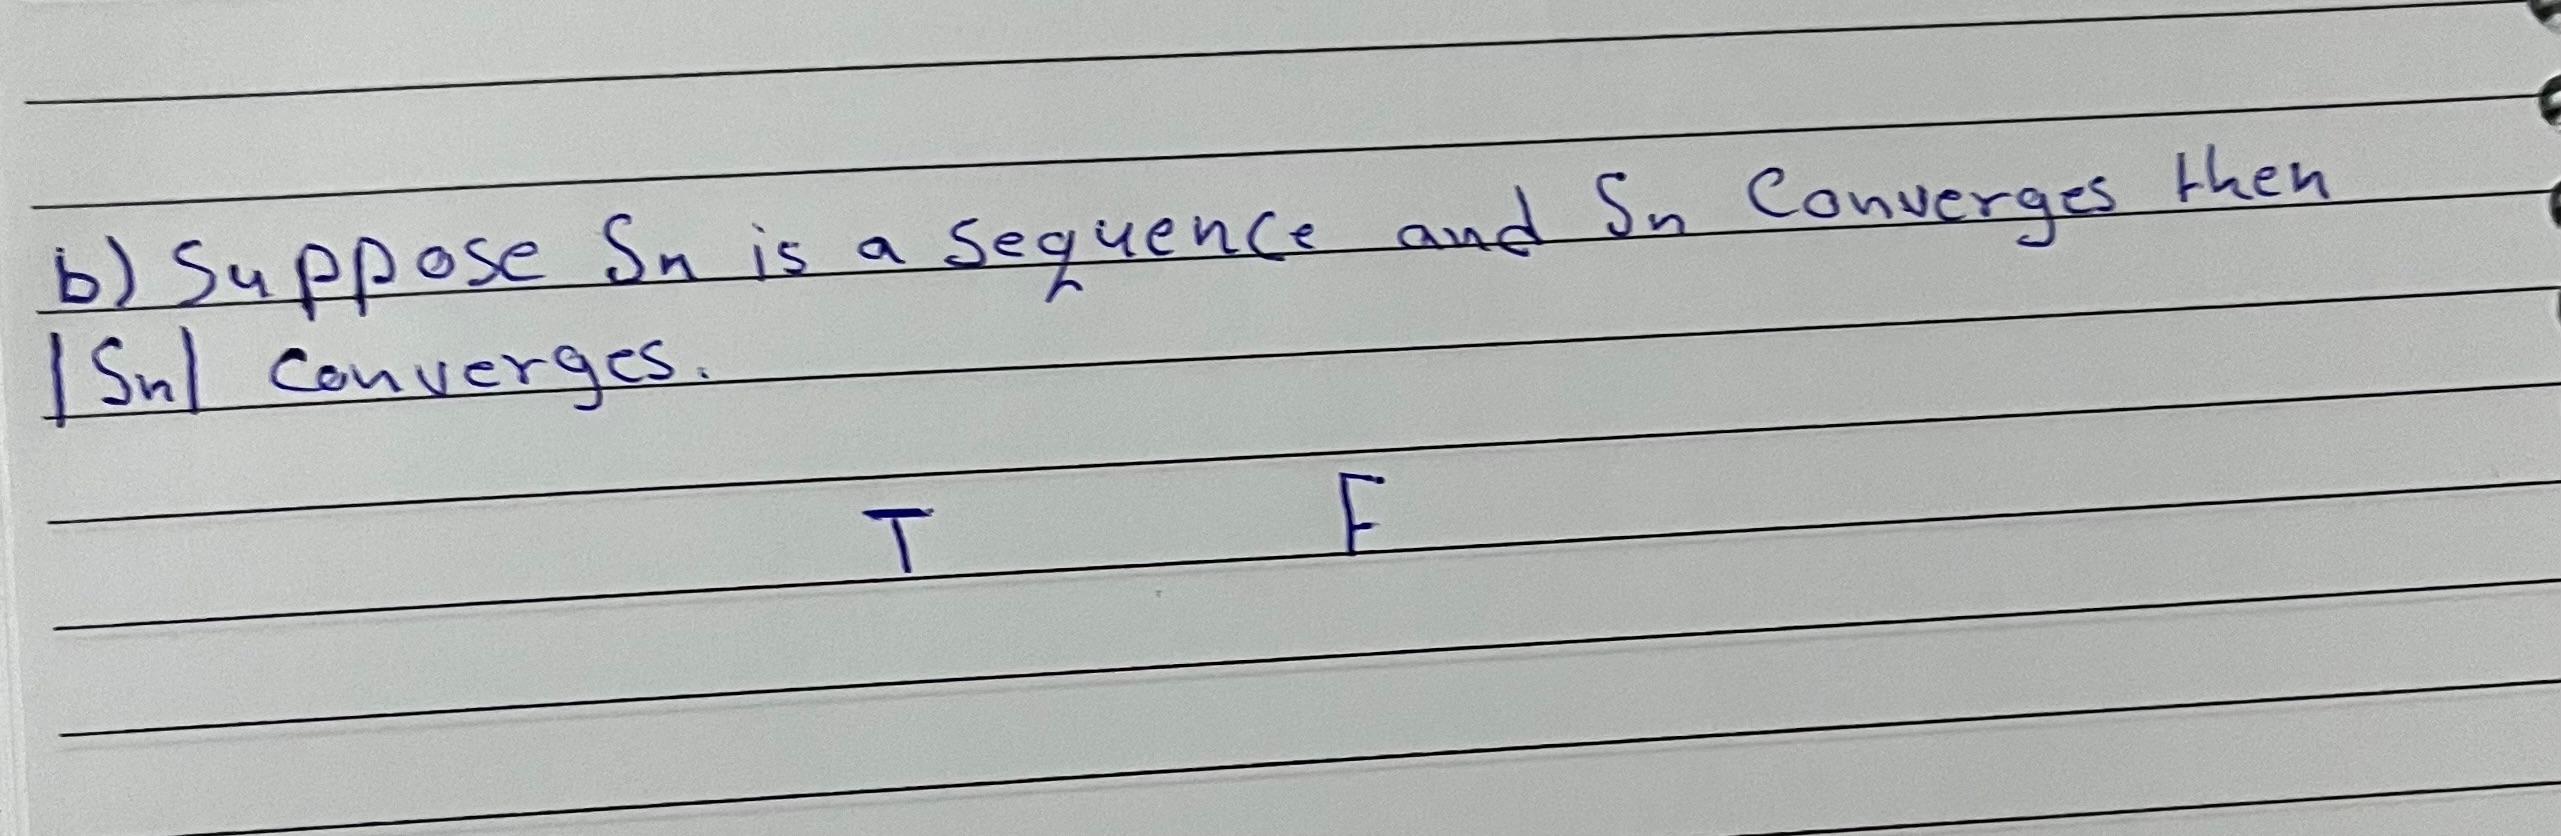 b) Suppose Sn is a sequence and Sn Converges then
|Sn| converges.
T F